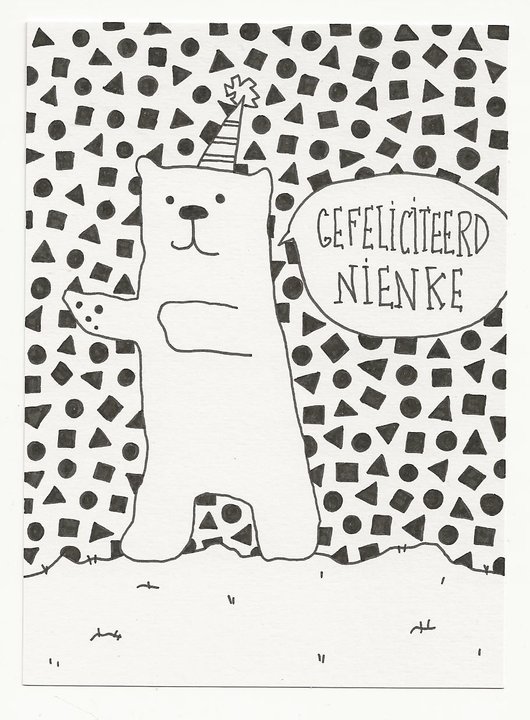 GEFELICITEERD
NIENKE